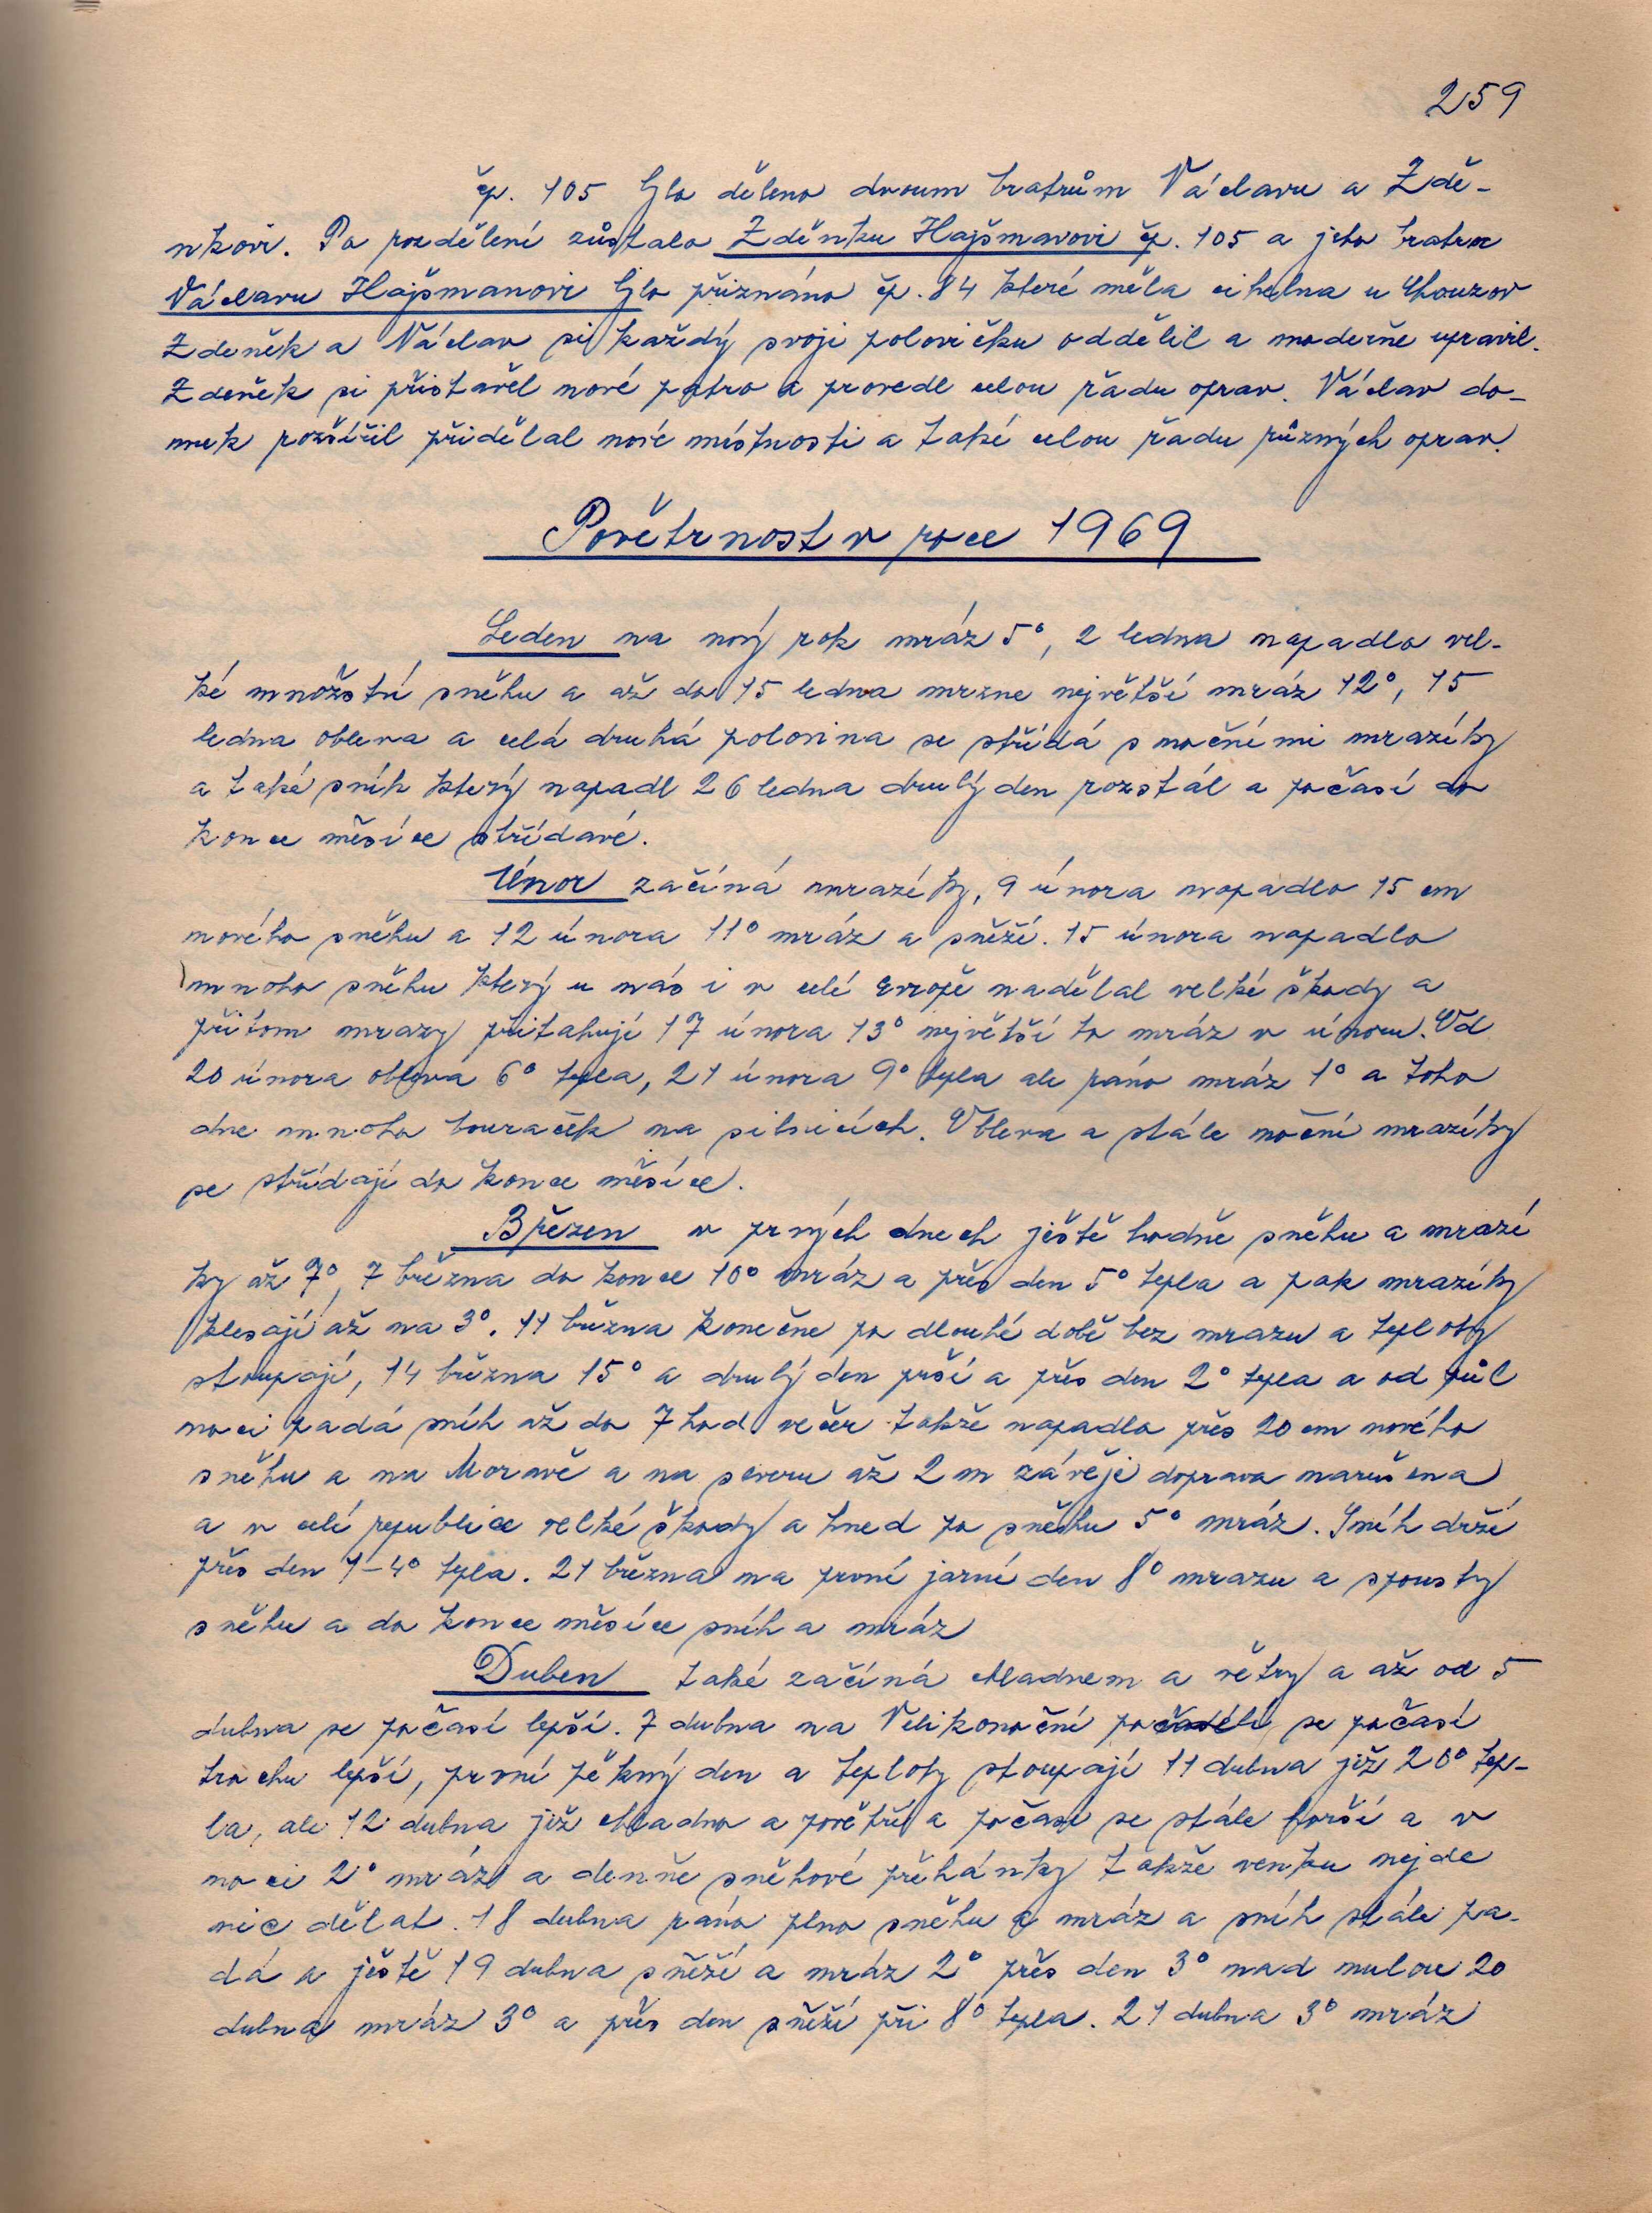 259
čp. 105 bylo děleno dvoum bratrům Václavu a Zdě-
nkovi. Po rozdělení zůstalo Zděnku Hajšmanovi čp. 105 a jeho bratru
Václavu Hajšmanovi bylo přiznáno čp. 84 které měla cihelna u Chouzov
Zdeněk a Václav si každý svoji polovičku oddělil a moderně upravil.
Zdeněk si přistavěl nové patro a provedl celou řadu oprav. Václav do-
mek rozšířil přidělal nové místnosti a také celou řadu různých oprav.
Povětrnost v roce 1969
Leden na nový rok mráz 5°, 2 ledna napadlo vel-
ké množství sněhu a až do 15 ledna mrzne největší mráz 12°, 15
ledna obleva a celá druhá polovina se střídá s nočními mrazíky
a také sníh který napadl 26 ledna druhý den rozstál a počasí do
konce měsíce střídavé.
Únor začíná mrazíky, 9 února napadlo 15 cm
nového sněhu a 12 února 11° mráz a sněží. 15 února napadlo
mnoho sněhu který u nás i v celé Evropě nadělal velké škody a
přitom mrazy přitahují 17 února 13° největší to mráz v únoru. Od
20 února obleva 6° tepla, 21 února 9° tepla ale ráno mráz 1° a toho
dne mnoho bouraček na silnicích. Obleva a stále noční mrazíky
se střídají do konce měsíce.
Březen v prvých dnech ještě hodně sněhu a mrazí
ky až 7°, 7 března do konce 10° mráz a přes den 5° tepla a pak mrazíky
klesají až na 3°. 11 března konečne po dlouhé době bez mrazu a teploty
stoupají, 14 března 15° a druhý den prší a přes den 2° tepla a od půl
noci padá sníh až do 7 hod večer takže napadlo přes 20 cm nového
sněhu a na Moravě a na severu až 2 m závěje doprava narušena
a v celé republice velké škody a hned po sněhu 5° mráz. Sníh drží
přes den 1-4° tepla. 21 března na první jarní den 8° mrazu a spousty
sněhu a do konce měsíce sníh a mráz
Duben také začíná chladnem a větry a až od 5
dubna se počasí lepší. 7 dubna na Velikonoční se počasí
trochu lepší, první pěkný den a teploty stoupají 11 dubna již 20° tep-
la, ale 12 dubna již chladno a povětří a počasí se stále horší a v
noci 2° mráz a denně sněhové přehánky takže venku nejde
nic dělat. 18 dubna ráno plno sněhu a mráz a sníh stále pa-
dá a ještě 19 dubna sněží a mráz 2° přes den 3° nad nulou 20
dubna mráz 3° a přes den sněží při 8° tepla. 21 dubna 3° mráz